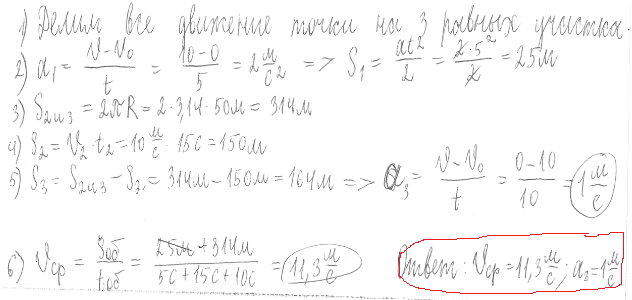 1) Делим все движение точки на 3 равных участка.
2) a₁ = (v - v₀)/t = (10-0)/5 = 2 м/с² => S₁ = at²/2 = 2·5²/2 = 25м
3) S₂ᵤ₃ = 2πR = 2·3,14·50м = 314м
4) S₂ = V₂·t₂ = 10 м/с · 15с = 150м
5) S₃ = S₂ᵤ₃ - S₂ = 314м - 150м = 164м => a₃ = (v - v₀)/t = (0-10)/10 = 1 м/с
6) Vср = Sоб/tоб = (25м + 314м)/(5с + 15с + 10с) = 11,3 м/с Ответ: Vср = 11,3 м/с; a₃ = 1 м/с